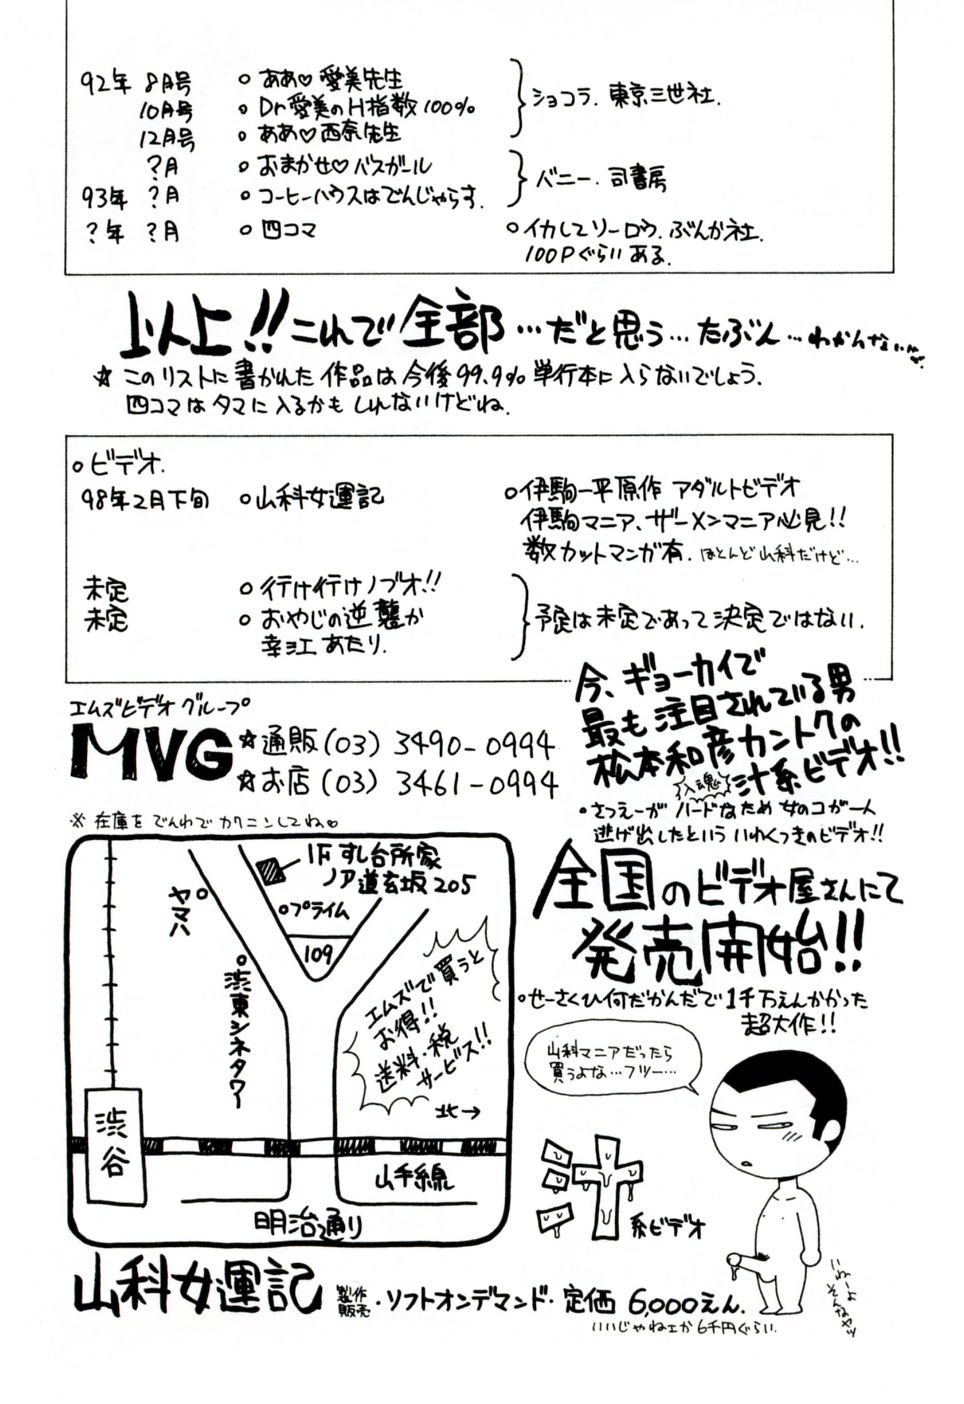 92年 8月号 ○ ああ♡愛美先生
10月号 ○ Dr愛美のH指数100%
12月号 ○ ああ♡西奈先生
ショコラ. 東京三世社.
?月 ○ おまかせ♡バスガール
93年 ?月 ○ コーヒーハウスはでんじゃらす.
バニー. 司書房
?年 ?月 ○ 四コマ ○イカしてソーロウ. ぶんか社.
100Pぐらいある.
以上!! これで全部…だと思う…たぶん…わかんないけど
☆ このリストに書かれた作品は今後99.9%単行本に入らないでしょう.
四コマはタマに入るかもしれないけどね.
○ビデオ.
98年2月下旬 ○山科女運記 ○伊駒一平原作 アダルトビデオ
伊駒マニア、ザーメンマニア必見!!
数カットマンガ有. ほとんど山科だけど…
未定 ○ 行け行けノブオ!!
未定 ○ おやじの逆襲か
幸江あたり.
予定は未定であって決定ではない.
エムズビデオグループ
MVG ☆通販(03) 3490-0994
☆お店(03) 3461-0994
※ 在庫をでんわでカクニンしてね♡
今、ギョーカイで
最も注目されている男
松本和彦カントクの
入魂 汁系ビデオ!!
・さつえーがハードなため女のコが一人
逃げ出したといういわくつきのビデオ!!
全国のビデオ屋さんにて
発売開始!!
○せーさくひ何だかんだで1千万えんかかった
超大作!!
1F すし台所家
ノア道玄坂205
ヤマハ
○プライム
109
渋東シネタワー
エムズで買うと
お得!!
送料・税
サービス!!
北→
渋谷
山手線
明治通り
山科マニアだったら
買うよな…フツー…
汁系ビデオ
いねーよ
そんなヤツ
山科女運記 製作販売・ソフトオンデマンド・定価 6,000えん.
いいじゃねェか6千円ぐらい.